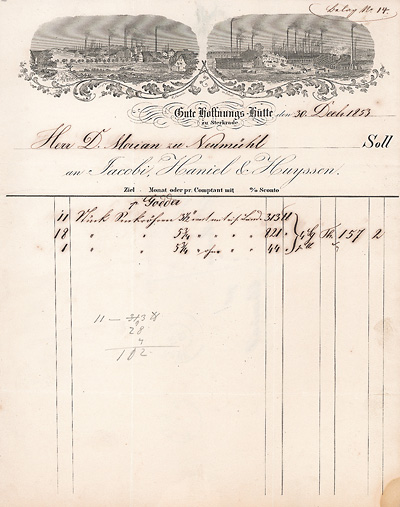 Belag No. 14.
Gute Hoffnungs-Hütte den 30. Decbr 1853
zu Sterkrade
Herr D. Morian zu Neumühl Soll
an Jacobi, Haniel & Huyssen.
Ziel Monat oder pr. Comptant mit % Sconto
p Goeder
11 Stück 313
18 " " 5¾ " " " 821 157 2
1 " " 5¾ " " " 44
11 — 313
28
4
102